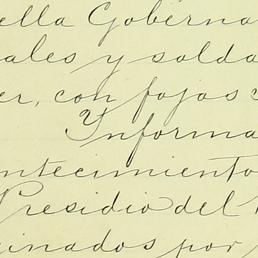 ella Goberna
ales y solda
er, con fojas
Informa
ntecimiento
Presidio del
inados por